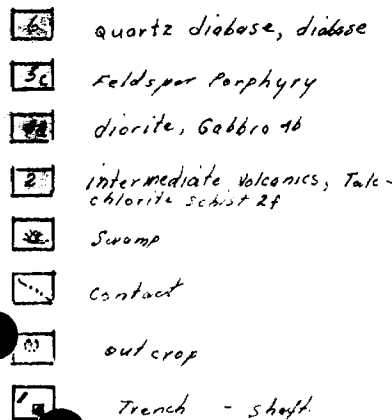 6 quartz diabase, diabase
3c Feldspar Porphyry
diorite, Gabbro 4b
2 intermediate volcanics, Talc-
chlorite schist 2f
Swamp
Contact
outcrop
Trench - shaft